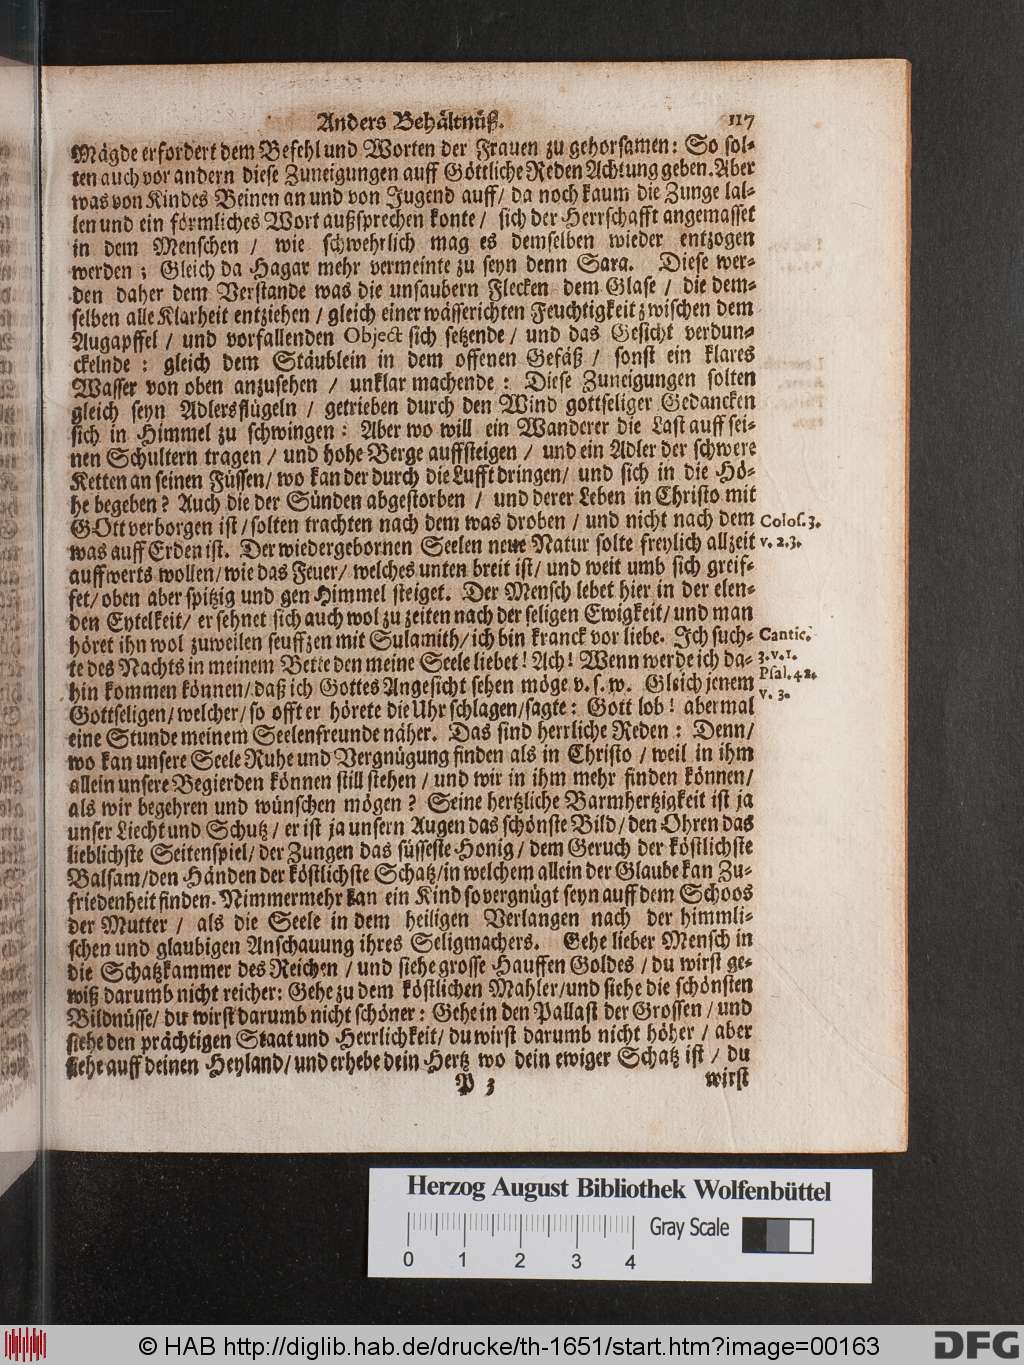 Anders Behältnüß. 117
Mägde erfordert dem Befehl und Worten der Frauen zu gehorsamen: So sol-
ten auch vor andern diese Zuneigungen auff Göttliche Reden Achtung geben. Aber
was von Kindes Beinen an und von Jugend auff/ da noch kaum die Zunge lal-
len und ein förmliches Wort außsprechen konte/ sich der Herrschafft angemasset
in dem Menschen / wie schwehrlich mag es demselben wieder entzogen
werden ; Gleich da Hagar mehr vermeinte zu seyn denn Sara. Diese wer-
den daher dem Verstande was die unsaubern Flecken dem Glase / die dem-
selben alle Klarheit entziehen / gleich einer wässerichten Feuchtigkeit zwischen dem
Augapffel / und vorfallenden Object sich setzende / und das Gesicht verdun-
ckelnde : gleich dem Stäublein in dem offenen Gefäß / sonst ein klares
Wasser von oben anzusehen / unklar machende : Diese Zuneigungen solten
gleich seyn Adlersflügeln / getrieben durch den Wind gottseliger Gedancken
sich in Himmel zu schwingen : Aber wo will ein Wanderer die Last auff sei-
nen Schultern tragen / und hohe Berge auffsteigen / und ein Adler der schwere
Ketten an seinen Füssen/ wo kan der durch die Lufft dringen/ und sich in die Hö-
he begeben? Auch die der Sünden abgestorben / und derer Leben in Christo mit
GOtt verborgen ist/ solten trachten nach dem was droben / und nicht nach dem Colos. 3.
was auff Erden ist. Der wiedergebornen Seelen neue Natur solte freylich allzeit v. 2. 3.
auffwerts wollen/ wie das Feuer/ welches unten breit ist/ und weit umb sich greif-
fet/ oben aber spitzig und gen Himmel steiget. Der Mensch lebet hier in der elen-
den Eytelkeit/ er sehnet sich auch wol zu zeiten nach der seligen Ewigkeit/ und man
höret ihn wol zuweilen seuffzen mit Sulamith/ ich bin kranck vor liebe. Ich such- Cantic.
te des Nachts in meinem Bette den meine Seele liebet! Ach! Wenn werde ich da- 3. v. 1.
hin kommen können/ daß ich Gottes Angesicht sehen möge v. s. w. Gleich jenem Psal. 42.
Gottseligen/ welcher/ so offt er hörete die Uhr schlagen/ sagte: Gott lob! abermal v. 3.
eine Stunde meinem Seelenfreunde näher. Das sind herrliche Reden : Denn/
wo kan unsere Seele Ruhe und Vergnügung finden als in Christo / weil in ihm
allein unsere Begierden können still stehen / und wir in ihm mehr finden können/
als wir begehren und wünschen mögen? Seine hertzliche Barmhertzigkeit ist ja
unser Liecht und Schutz/ er ist ja unsern Augen das schönste Bild/ den Ohren das
lieblichste Seitenspiel/ der Zungen das süsseste Honig/ dem Geruch der köstlichste
Balsam/ den Händen der köstlichste Schatz/ in welchem allein der Glaube kan Zu-
friedenheit finden. Nimmermehr kan ein Kind so vergnügt seyn auff dem Schoos
der Mutter / als die Seele in dem heiligen Verlangen nach der himmli-
schen und glaubigen Anschauung ihres Seligmachers. Gehe lieber Mensch in
die Schatzkammer des Reichen / und siehe grosse Hauffen Goldes / du wirst ge-
wiß darumb nicht reicher: Gehe zu dem köstlichen Mahler/ und siehe die schönsten
Bildnüsse/ du wirst darumb nicht schöner: Gehe in den Pallast der Grossen / und
siehe den prächtigen Staat und Herrlichkeit/ du wirst darumb nicht höher / aber
siehe auff deinen Heyland/ und erhebe dein Hertz wo dein ewiger Schatz ist / du
P 3 wirst
Herzog August Bibliothek Wolfenbüttel
Gray Scale
0 1 2 3 4
© HAB http://diglib.hab.de/drucke/th-1651/start.htm?image=00163
DFG